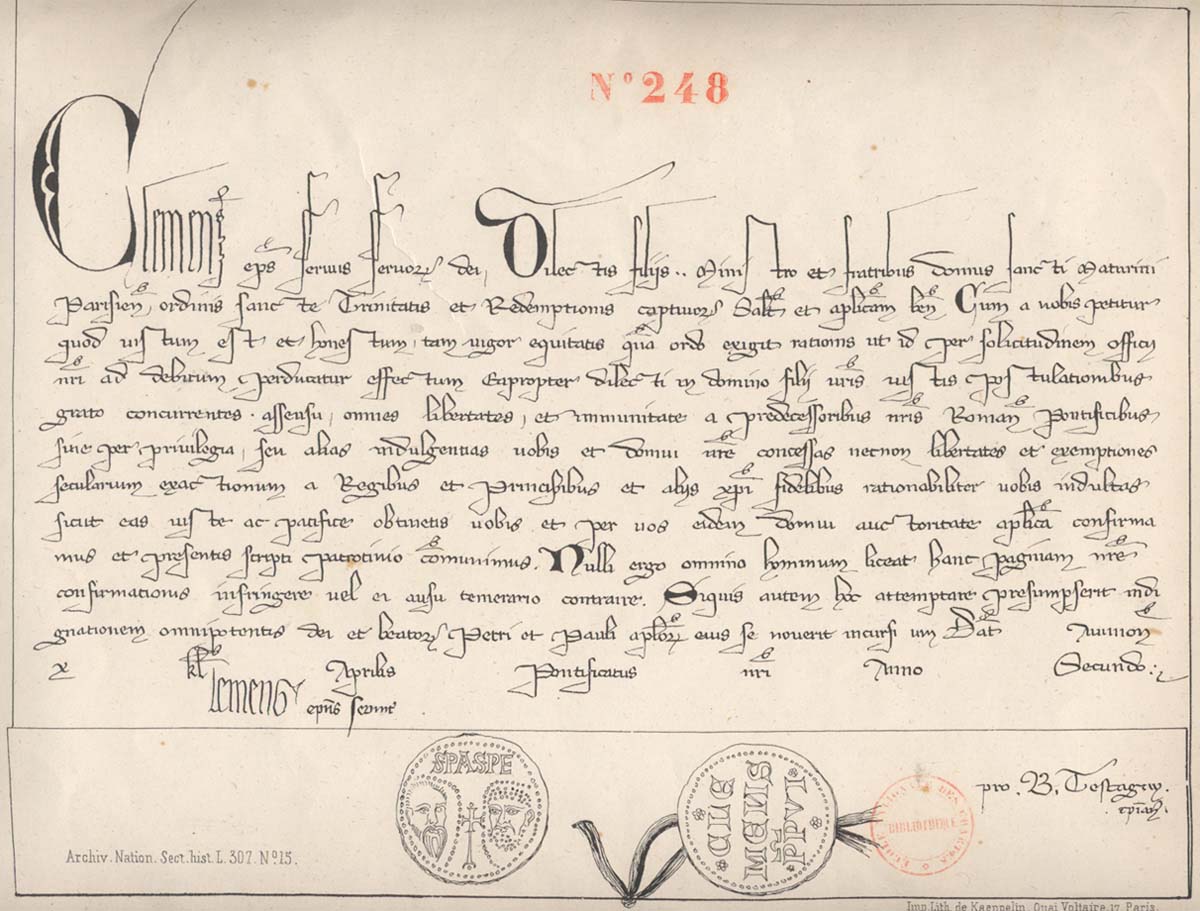 N° 248
Clemens ep̄s servus servoꝝ dei, Dilectis filijs .. Ministro et fratribus domus sancti Maturini
Parisien̄, ordinis sancte Trinitatis et Redemptionis captivoꝝ Salt̄ et apl̄icam ben̄ Cum a nobis petitur
quod iustum est et honestum, tam vigor equitatis quā ordo exigit rationis ut id per solicitudinem officij
nr̄i ad debitum perducatur effectum Eapropter dilecti in domino filij vr̄is iustis postulationibus
grato concurrentes assensu, omnes libertates, et immunitate a predecessoribus nr̄is Roman̄ Pontificibus
sive per privilegia, seu alias indulgentias vobis et domui vr̄e concessas necnon libertates et exemptiones
secularium exactionum a Regibus et Principibus et alijs xp̄i fidelibus rationabiliter vobis indultas
sicut eas iuste ac pacifice obtinetis vobis et per vos eidem domui auctoritate apl̄ica confirma
mus et presentis scripti patrocinio com̄unimus. Nulli ergo omnino hominum liceat hanc paginam nr̄e
confirmationis infringere vel ei ausu temerario contraire. Siquis autem hoc attemptare presumpserit indi
gnationem omnipotentis dei et beatoꝝ Petri et Pauli apl̄oꝝ eius se noverit incursurum Dat̄ Avinion̄
x kl̄ Aprilis Pontificatus nr̄i Anno Secundo
Clemens
SPASPE
CLE
MENS
PP VI
pro . B.
BIBLIOTHEQUE
Archiv. Nation. Sect. hist. L. 307. N° 15.
Imp. Lith. de Kaeppelin, Quai Voltaire, 17, Paris.